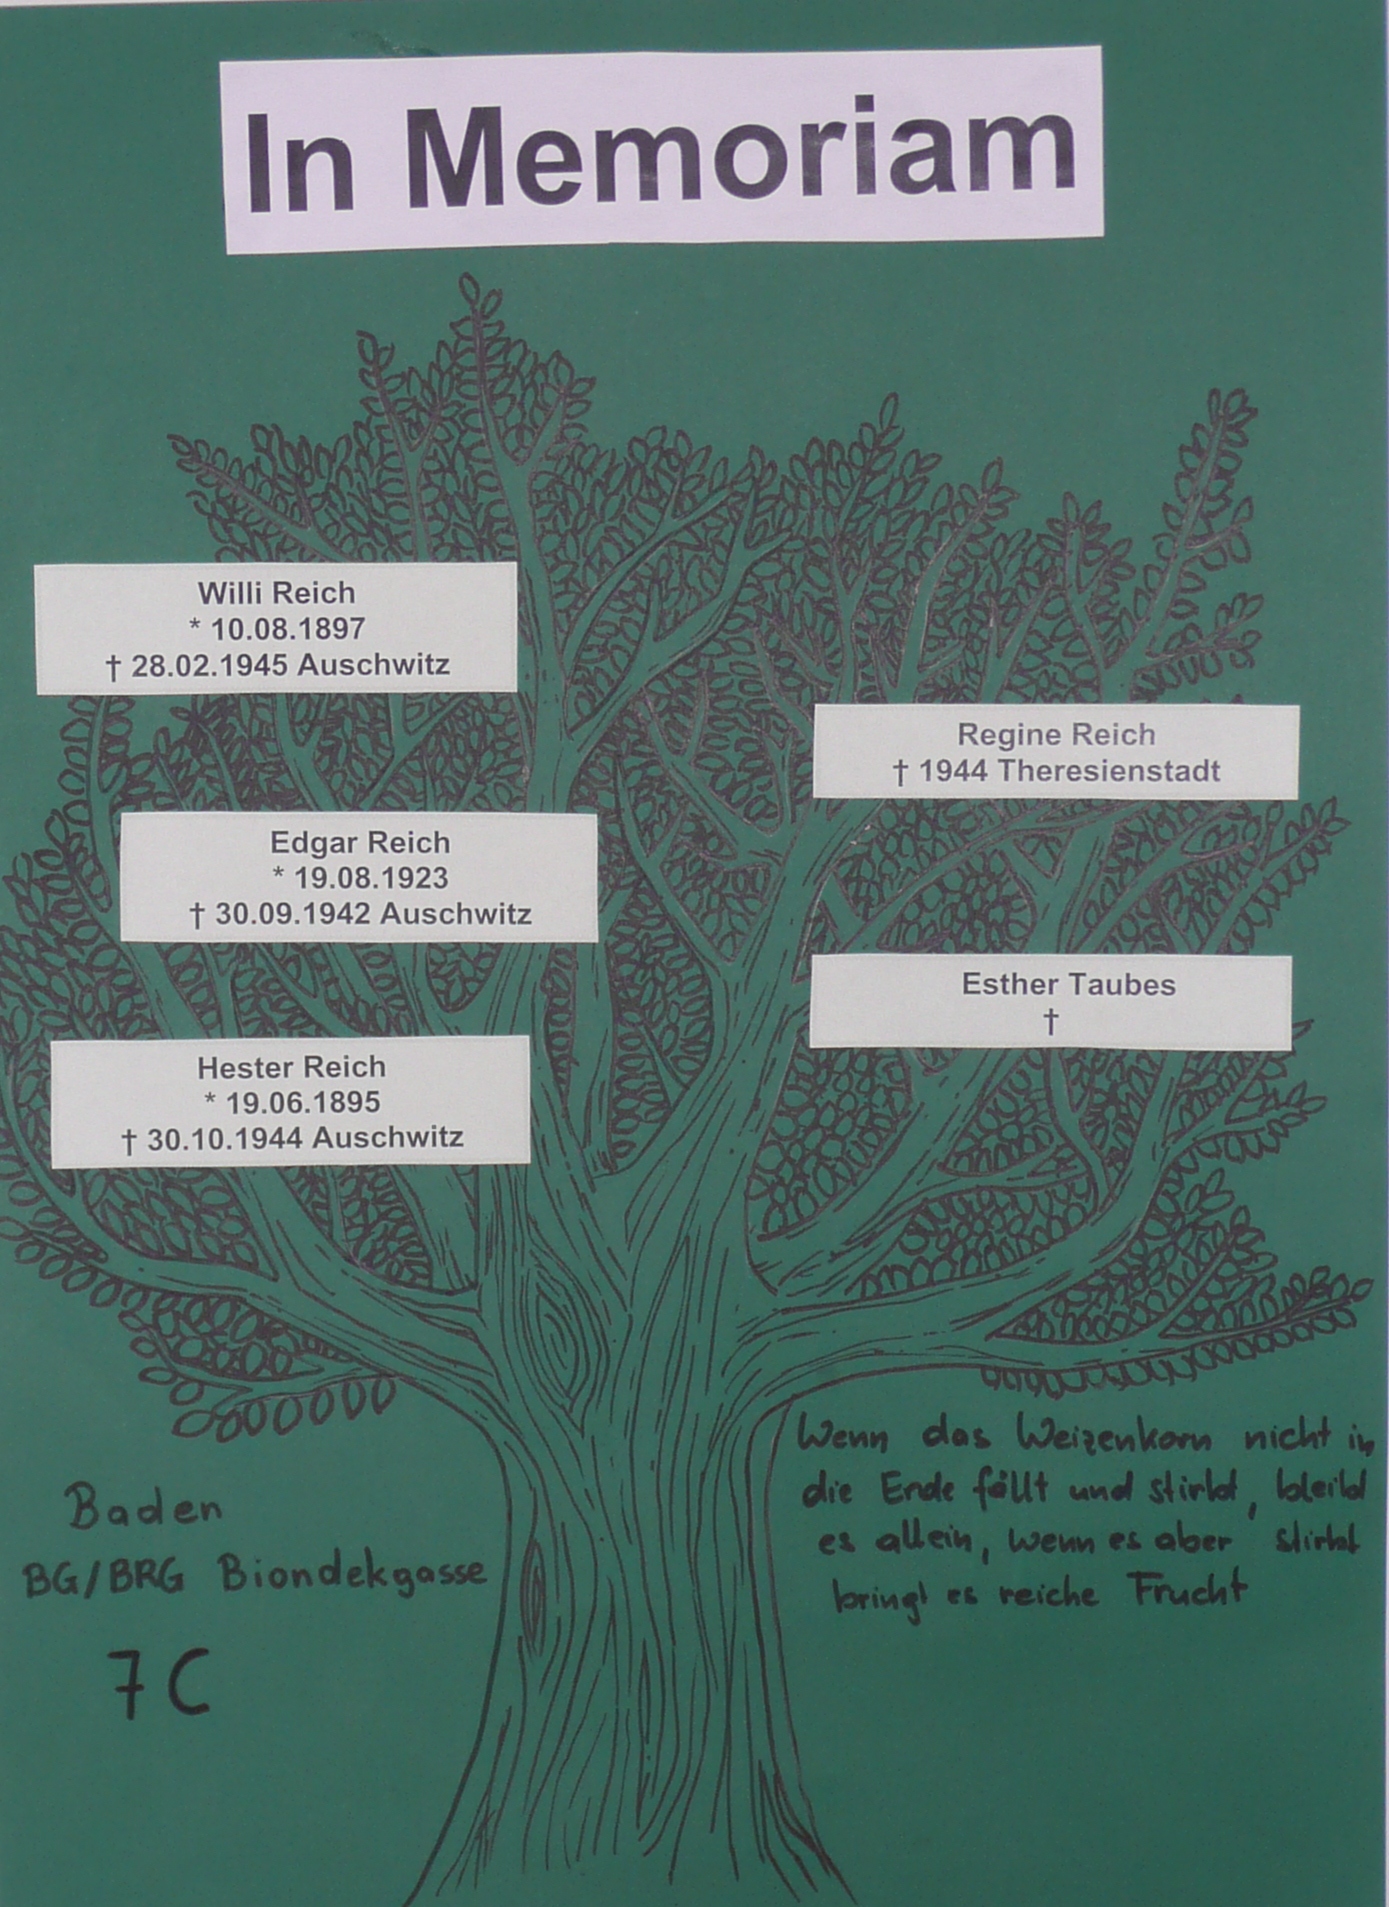 In Memoriam
Willi Reich
* 10.08.1897
† 28.02.1945 Auschwitz
Regine Reich
† 1944 Theresienstadt
Edgar Reich
* 19.08.1923
† 30.09.1942 Auschwitz
Esther Taubes
†
Hester Reich
* 19.06.1895
† 30.10.1944 Auschwitz
Wenn das Weizenkorn nicht in
die Erde fällt und stirbt, bleibt
es allein, wenn es aber stirbt
bringt es reiche Frucht
Baden
BG/BRG Biondekgasse
7C